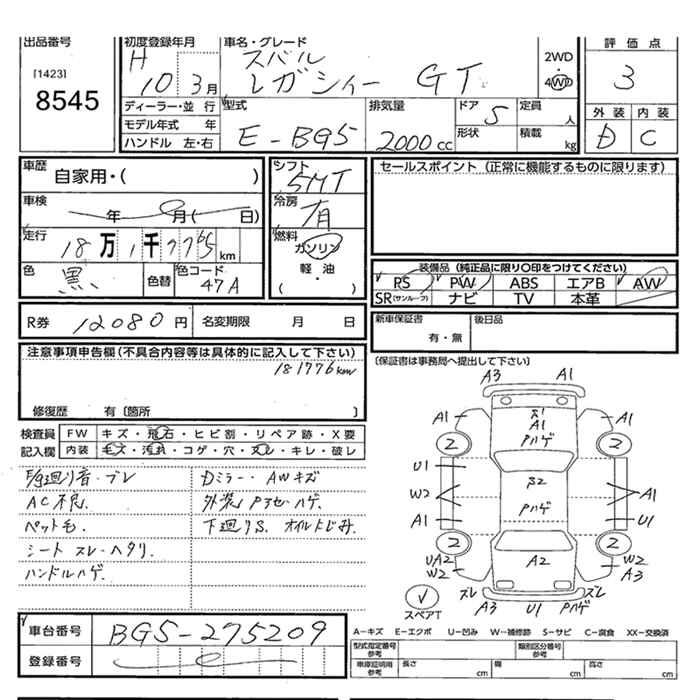 出品番号
[1423]
8545
初度登録年月
H 10 3月
車名・グレード
スバル
レガシィー GT
2WD
・
4WD
評価点
3
外装 内装
D C
ディーラー・並行
モデル年式 年
ハンドル 左・右
型式
E-BG5
排気量
2000cc
ドア 5
形状
定員 人
積載 kg
車歴
自家用・( )
車検
年 月( 日)
走行
18万1千776km
色 黒
色替
色コード
47A
シフト
5MT
冷房
有
燃料
ガソリン
軽・油
( )
セールスポイント (正常に機能するものに限ります)
装備品 (純正品に限り〇印をつけてください)
PS PW ABS エアB AW
SR(サンルーフ) ナビ TV 本革
R券 12080円 名変期限 月 日
新車保証書
有・無
後日品
注意事項申告欄(不具合内容等は具体的に記入して下さい)
181776km
修復歴 有〔箇所 〕
〔保証書は事務局へ提出して下さい〕
検査員
記入欄
FW キズ・飛石・ヒビ割・リペア跡・X要
内装 モズ・汚れ・コゲ・穴・スレ・キレ・破レ
F/G廻り音・ブレ
AC不良.
ペット毛.
シート スレ・ヘタリ.
ハンドルハゲ.
Dミラー・AWキズ
外装Pアセ・ハゲ.
下廻りS. オイルにじみ.
A3 A1
A1 A1
A1
Pハゲ
2 2
U1
W2 B2 A1
Pハゲ
A1 U1
2 2
UA2 A2 W2
W2 A3
スレ スレ
A3 U1 Pハゲ
スペアT
車台番号
BG5-275209
登録番号
A-キズ E-エクボ U-凹み W-補修跡 S-サビ C-腐食 XX-交換済
型式指定番号
参考
類別区分番号
参考
車庫証明用
参考
長さ cm
幅 cm
高さ cm